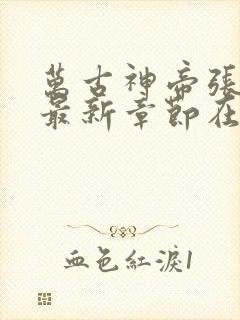 萬古神帝張
最新章節在
血色紅淚1